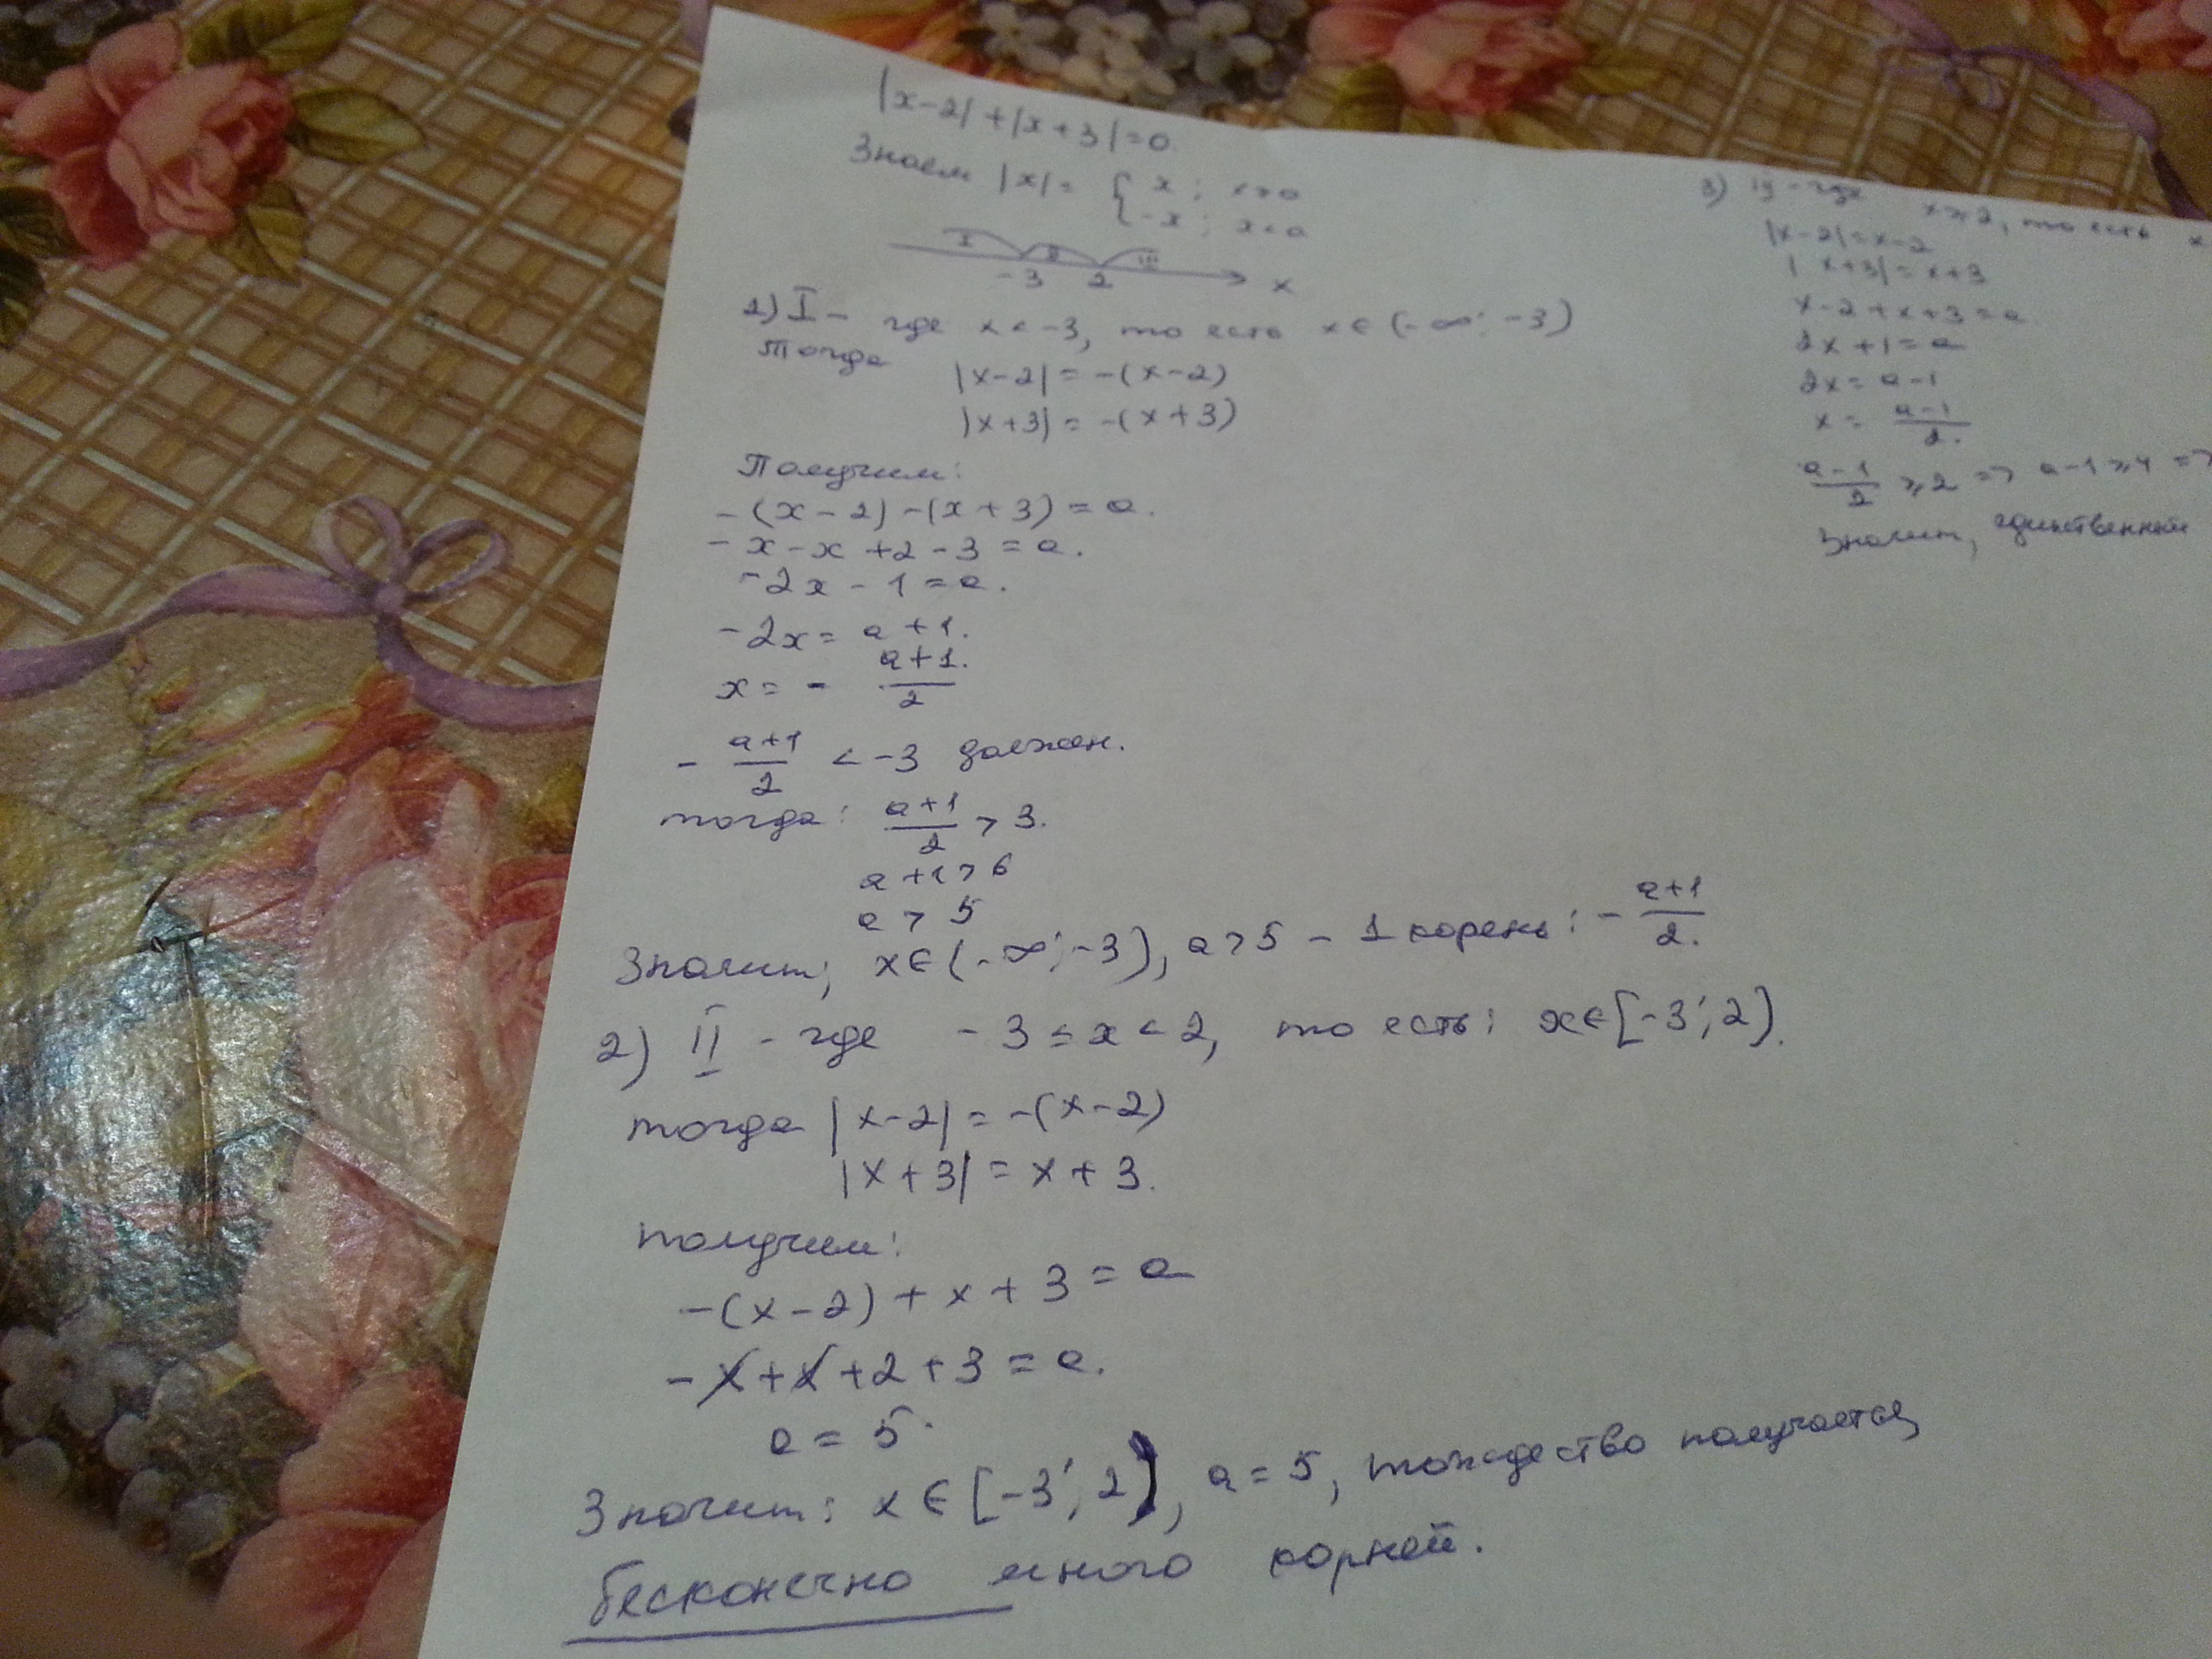 |x-2|+|x+3|=a
Знаем |x|= { x; x≥0
-x; x<0
I II III
-3 2 x
1) I - где x < -3, то есть x ∈ (-∞; -3)
Тогда |x-2| = -(x-2)
|x+3| = -(x+3)
Получим:
-(x-2)-(x+3)=a.
-x-x+2-3=a.
-2x-1=a.
-2x=a+1.
x = - (a+1)/2
- (a+1)/2 < -3 должен.
тогда: (a+1)/2 > 3.
a+1>6
a > 5
Значит; x∈(-∞;-3), a>5 - 1 корень: - (a+1)/2.
2) II - где -3 ≤ x < 2, то есть: x∈[-3; 2).
тогда |x-2| = -(x-2)
|x+3| = x+3.
получим:
-(x-2)+x+3=a
-x+x+2+3=a.
a = 5.
Значит: x ∈ [-3; 2), a=5, тождество получается,
бесконечно много корней.
3) III - где x ≥ 2, то есть x
|x-2|=x-2
|x+3|=x+3
x-2+x+3=a
2x+1=a
2x=a-1
x = (a-1)/2.
(a-1)/2 ≥ 2 => a-1≥4 =>
Значит, единственный